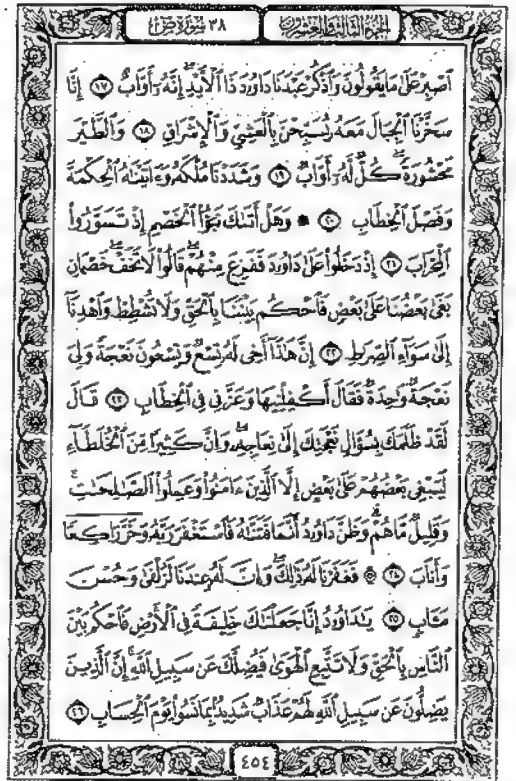 الجزء الثالث والعشرون
٣٨ سورة ص
ٱصۡبِرۡ عَلَىٰ مَا يَقُولُونَ وَٱذۡكُرۡ عَبۡدَنَا دَاوُۥدَ ذَا ٱلۡأَيۡدِۖ إِنَّهُۥٓ أَوَّابٌ ١٧ إِنَّا
سَخَّرۡنَا ٱلۡجِبَالَ مَعَهُۥ يُسَبِّحۡنَ بِٱلۡعَشِيِّ وَٱلۡإِشۡرَاقِ ١٨ وَٱلطَّيۡرَ
مَحۡشُورَةٗۖ كُلّٞ لَّهُۥٓ أَوَّابٞ ١٩ وَشَدَدۡنَا مُلۡكَهُۥ وَءَاتَيۡنَٰهُ ٱلۡحِكۡمَةَ
وَفَصۡلَ ٱلۡخِطَابِ ٢٠ ۞ وَهَلۡ أَتَىٰكَ نَبَؤُاْ ٱلۡخَصۡمِ إِذۡ تَسَوَّرُواْ
ٱلۡمِحۡرَابَ ٢١ إِذۡ دَخَلُواْ عَلَىٰ دَاوُۥدَ فَفَزِعَ مِنۡهُمۡۖ قَالُواْ لَا تَخَفۡۖ خَصۡمَانِ
بَغَىٰ بَعۡضُنَا عَلَىٰ بَعۡضٖ فَٱحۡكُم بَيۡنَنَا بِٱلۡحَقِّ وَلَا تُشۡطِطۡ وَٱهۡدِنَآ
إِلَىٰ سَوَآءِ ٱلصِّرَٰطِ ٢٢ إِنَّ هَٰذَآ أَخِي لَهُۥ تِسۡعٞ وَتِسۡعُونَ نَعۡجَةٗ وَلِيَ
نَعۡجَةٞ وَٰحِدَةٞ فَقَالَ أَكۡفِلۡنِيهَا وَعَزَّنِي فِي ٱلۡخِطَابِ ٢٣ قَالَ
لَقَدۡ ظَلَمَكَ بِسُؤَالِ نَعۡجَتِكَ إِلَىٰ نِعَاجِهِۦۖ وَإِنَّ كَثِيرٗا مِّنَ ٱلۡخُلَطَآءِ
لَيَبۡغِي بَعۡضُهُمۡ عَلَىٰ بَعۡضٍ إِلَّا ٱلَّذِينَ ءَامَنُواْ وَعَمِلُواْ ٱلصَّٰلِحَٰتِ
وَقَلِيلٞ مَّا هُمۡۗ وَظَنَّ دَاوُۥدُ أَنَّمَا فَتَنَّٰهُ فَٱسۡتَغۡفَرَ رَبَّهُۥ وَخَرَّۤ رَاكِعٗاۤ
وَأَنَابَ ٢٤ ۩ فَغَفَرۡنَا لَهُۥ ذَٰلِكَۖ وَإِنَّ لَهُۥ عِندَنَا لَزُلۡفَىٰ وَحُسۡنَ
مَـَٔابٖ ٢٥ يَٰدَاوُۥدُ إِنَّا جَعَلۡنَٰكَ خَلِيفَةٗ فِي ٱلۡأَرۡضِ فَٱحۡكُم بَيۡنَ
ٱلنَّاسِ بِٱلۡحَقِّ وَلَا تَتَّبِعِ ٱلۡهَوَىٰ فَيُضِلَّكَ عَن سَبِيلِ ٱللَّهِۚ إِنَّ ٱلَّذِينَ
يَضِلُّونَ عَن سَبِيلِ ٱللَّهِ لَهُمۡ عَذَابٞ شَدِيدُۢ بِمَا نَسُواْ يَوۡمَ ٱلۡحِسَابِ ٢٦
٤٥٤